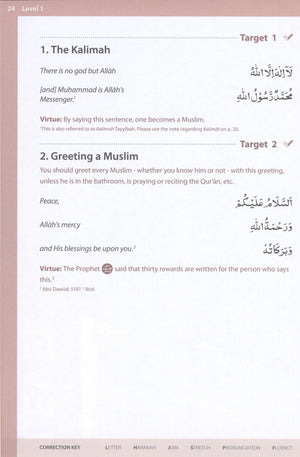 24 Level 1
Target 1 ✓
1. The Kalimah
There is no god but Allāh لَا إِلٰهَ إِلَّا اللهُ
[and] Muḥammad is Allāh's
Messenger.¹ مُحَمَّدٌ رَّسُوْلُ اللهِ
Virtue: By saying this sentence, one becomes a Muslim.
¹This is also referred to as Kalimah Tayyibah. Please see the note regarding Kalimāt on p. 20.
Target 2 ✓
2. Greeting a Muslim
You should greet every Muslim - whether you know him or not - with this greeting,
unless he is in the bathroom, is praying or reciting the Qur'ān, etc.
Peace, اَلسَّلَامُ عَلَيْكُمْ
Allāh's mercy وَرَحْمَةُ اللهِ
and His blessings be upon you.² وَبَرَكَاتُهُ
Virtue: The Prophet ﷺ said that thirty rewards are written for the person who says
this.³
² Abū Dāwūd: 5197. ³ Ibid.
CORRECTION KEY LETTER HARAKAH JOIN STRETCH PRONUNCIATION FLUENCY